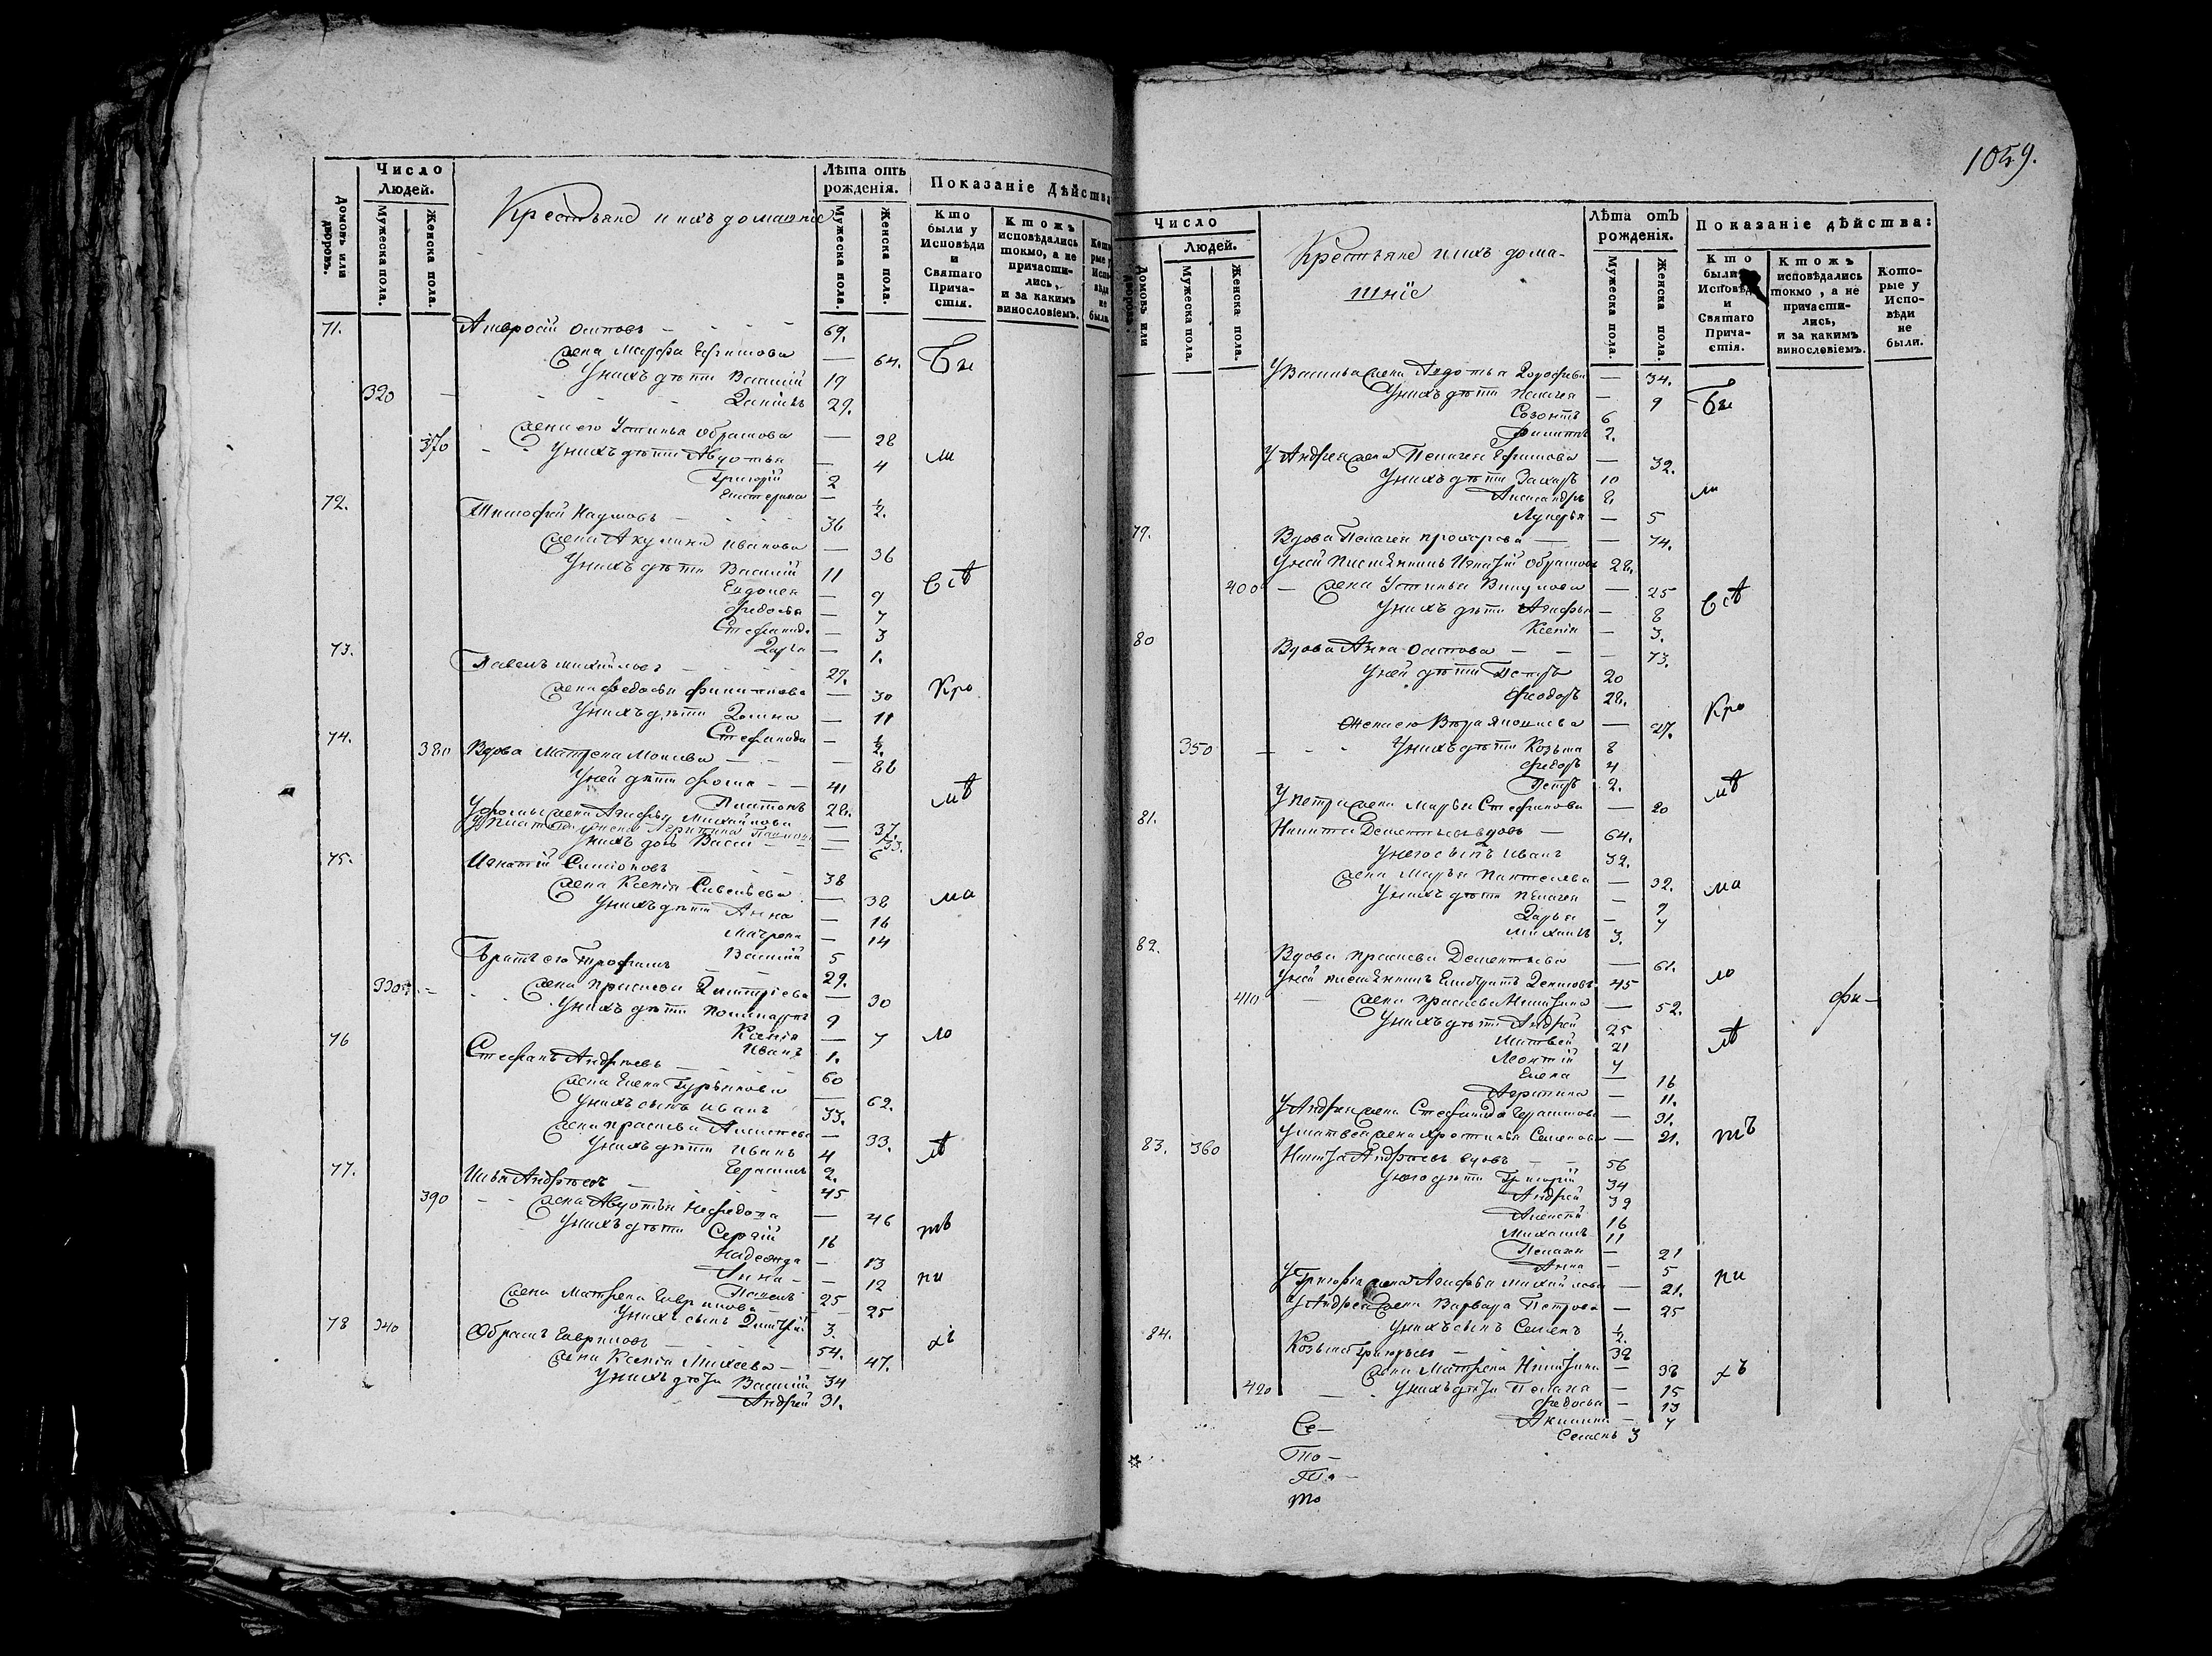 1059.
Число Людей.
Домовъ или дворовъ.
Мужеска пола.
Женска пола.
Крестьяне и ихъ домашніе
Лѣта отъ рожденія.
Мужеска пола.
Женска пола.
Показаніе дѣйства
Кто были у Исповѣди и Святаго Прича-стія.
Ктожъ исповѣдались токмо, а не причасти-лись, и за какимъ винословіемъ.
Кото рые у Испо вѣди не были
71. Амвросій Осиповъ — 69.
жена Марфа Ефимова — 64. Бы
У нихъ дѣти Василій 19
320 — Даніилъ 29.
жена его Устинья Обрамова — 28
370 - - У нихъ дѣти Авдотья — 4 ли
Григорій 2
Екатерина — ½.
72. Тимофей Наумовъ - 36
жена Акулина Иванова — 36
У нихъ дѣти Василій 11 Свѣ
Евдокея — 9
Федосья — 7
Стефанида — 3
Дарья — 1.
73. Павелъ Михайловъ - 29.
жена Федосья Филиппова — 30 Кро
У нихъ дѣти Домна — 11
Стефанида — ½.
74. 380 Вдова Матрена Моисева — 88
У ней дѣти Фома — 41 мѣ
Платонъ 28.
У Фомы жена Агафья Михайлова — 37.
У Платона жена — 33.
У нихъ дочь — 6
75. Игнатій Симіоновъ 38
жена Ксенія Савельева — 38 ма
У нихъ дѣти Анна — 16
Матрена — 14
Василій 5
Братъ его Трофимъ — 29.
330 - - жена Праскева Дмитріева — 30
У нихъ дѣти 9
Ксенія — 7 ло
Иванъ 1.
76 Стефанъ Андреевъ - 60
жена Елена Гурьянова — 62.
У нихъ сынъ Иванъ 33.
жена Праскева — 33. лѣ
У нихъ дѣти Иванъ 4
Герасимъ 2.
77. Илья Андреевъ — 45
390 - - жена Авдотья Нефедова — 46
У нихъ дѣти Сергій 16 тъ
Надежда — 13
Анна - — 12 ни
Павелъ 25
жена Матрена Гаврилова — 25
У нихъ сынъ Дмитрій 3.
78 340 Обрамъ Гавриловъ 54. хъ
жена Ксенія Михеева — 47.
У нихъ дѣти Василій 34
Андрей 31.
Число Людей.
Домовъ или дворовъ.
Мужеска пола.
Женска пола.
Крестьяне и ихъ дома-
шніе
Лѣта отъ рожденія.
Мужеска пола.
Женска пола.
Показаніе дѣйства:
Кто были Исповѣди и Святаго Прича-стія.
Ктожъ исповѣдались токмо, а не причасти-лись, и за какимъ винословіемъ.
Кото-рые у Испо-вѣди не были.
У Василья жена Авдотья Дорофеева — 34.
У нихъ дѣти Пелагея — 9 Бы
Созонтъ 6
Филиппъ 2.
У Андрея жена Пелагея Ефимова — 32.
У нихъ дѣти Захаръ 10
Александръ 8 ли
Лукерья — 5
79. Вдова Пелагея Прохорова — — 74.
У ней племянникъ Игнатій Обрамовъ 28.
400 — жена Устинья Викулова — 25 Свѣ
У нихъ дѣти Агафья — 8
Ксенія — 3.
80 Вдова Анна Осипова — — 73.
У ней дѣти Петръ 20
Феодоръ 28. Кро
Жена его Вѣра — 27.
350 — - У нихъ дѣти Козьма 8
Федоръ 4
Петръ 2. мѣ
У Петра жена Марья Стефанова — 20
81. Никита Дементьевъ вдовъ — 64.
У него сынъ Иванъ 32.
жена Марья Пантелѣева — 32. ма
У нихъ дѣти Пелагея — 9
Дарья — 7
Михаилъ 3.
82. Вдова Праскева Дементьева — 61. ло
У ней племянникъ Денисовъ 45
410 — жена Праскева Никитина — 52. фи-
У нихъ дѣти Андрей 25
Матвей 21 лѣ
Леонтій 7
Елена — 16
— 11.
У Андрея жена Стефанида Герасимова — 31.
У Матвея жена Семенова — 21. тъ
83. 360 Никита Андреевъ вдовъ — 56
У него дѣти Григорій 34
Андрей 32
Алексей 16
Михаилъ 11
Пелагея — 21
Анна — 5 ни
У Григорія жена Агафья Михайлова — 21.
У Андрея жена Варвара Петрова — 25
У нихъ сынъ Семенъ ½.
84. Козьма Григорьевъ 38
жена Матрена Никитина — 38 хъ
420 — - У нихъ дѣти Пелагея — 15
Федосья — 13
Акилина — 7
Семенъ 3
Се-
То-
Та-
то